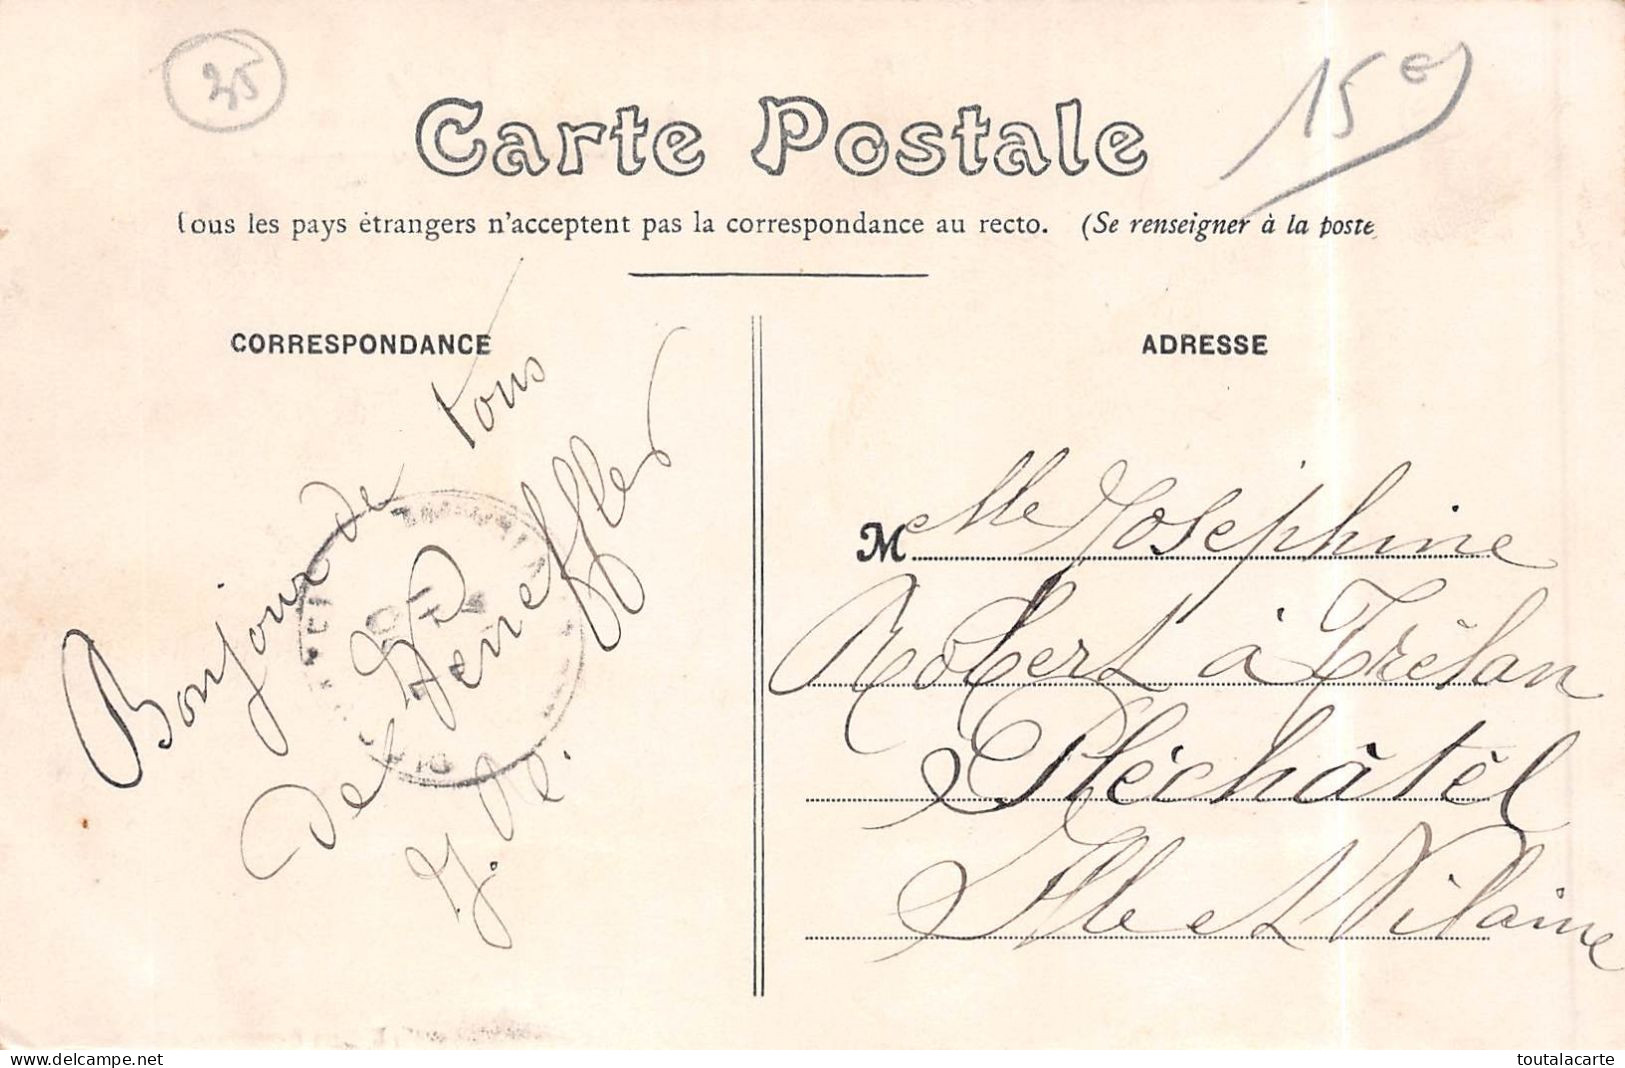 35
15€
Carte Postale
Tous les pays étrangers n'acceptent pas la correspondance au recto. (Se renseigner à la poste
CORRESPONDANCE
ADRESSE
Bonjour de tous
Del
J. R.
M elle Josephine
Robert à Trélan
Pléchâtèl
Ille et Vilaine
delcampe.net
toutalacarte